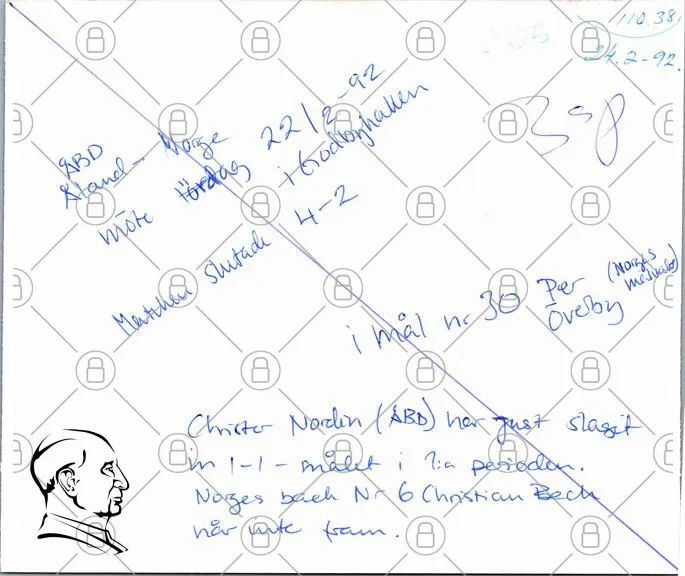 110.38
24.2-92.
305
3 sp
ÅBD
Åland - Norge
möte lördag 22/2-92
i Godbyhallen
Matchen slutade 4-2
i mål nr 30 Per Överby
(Norges målvakt)
Christer Nordin (ÅBD) har just slagit
in 1-1-målet i 1:a perioden.
Norges back Nr 6 Christian Bech
når inte fram.